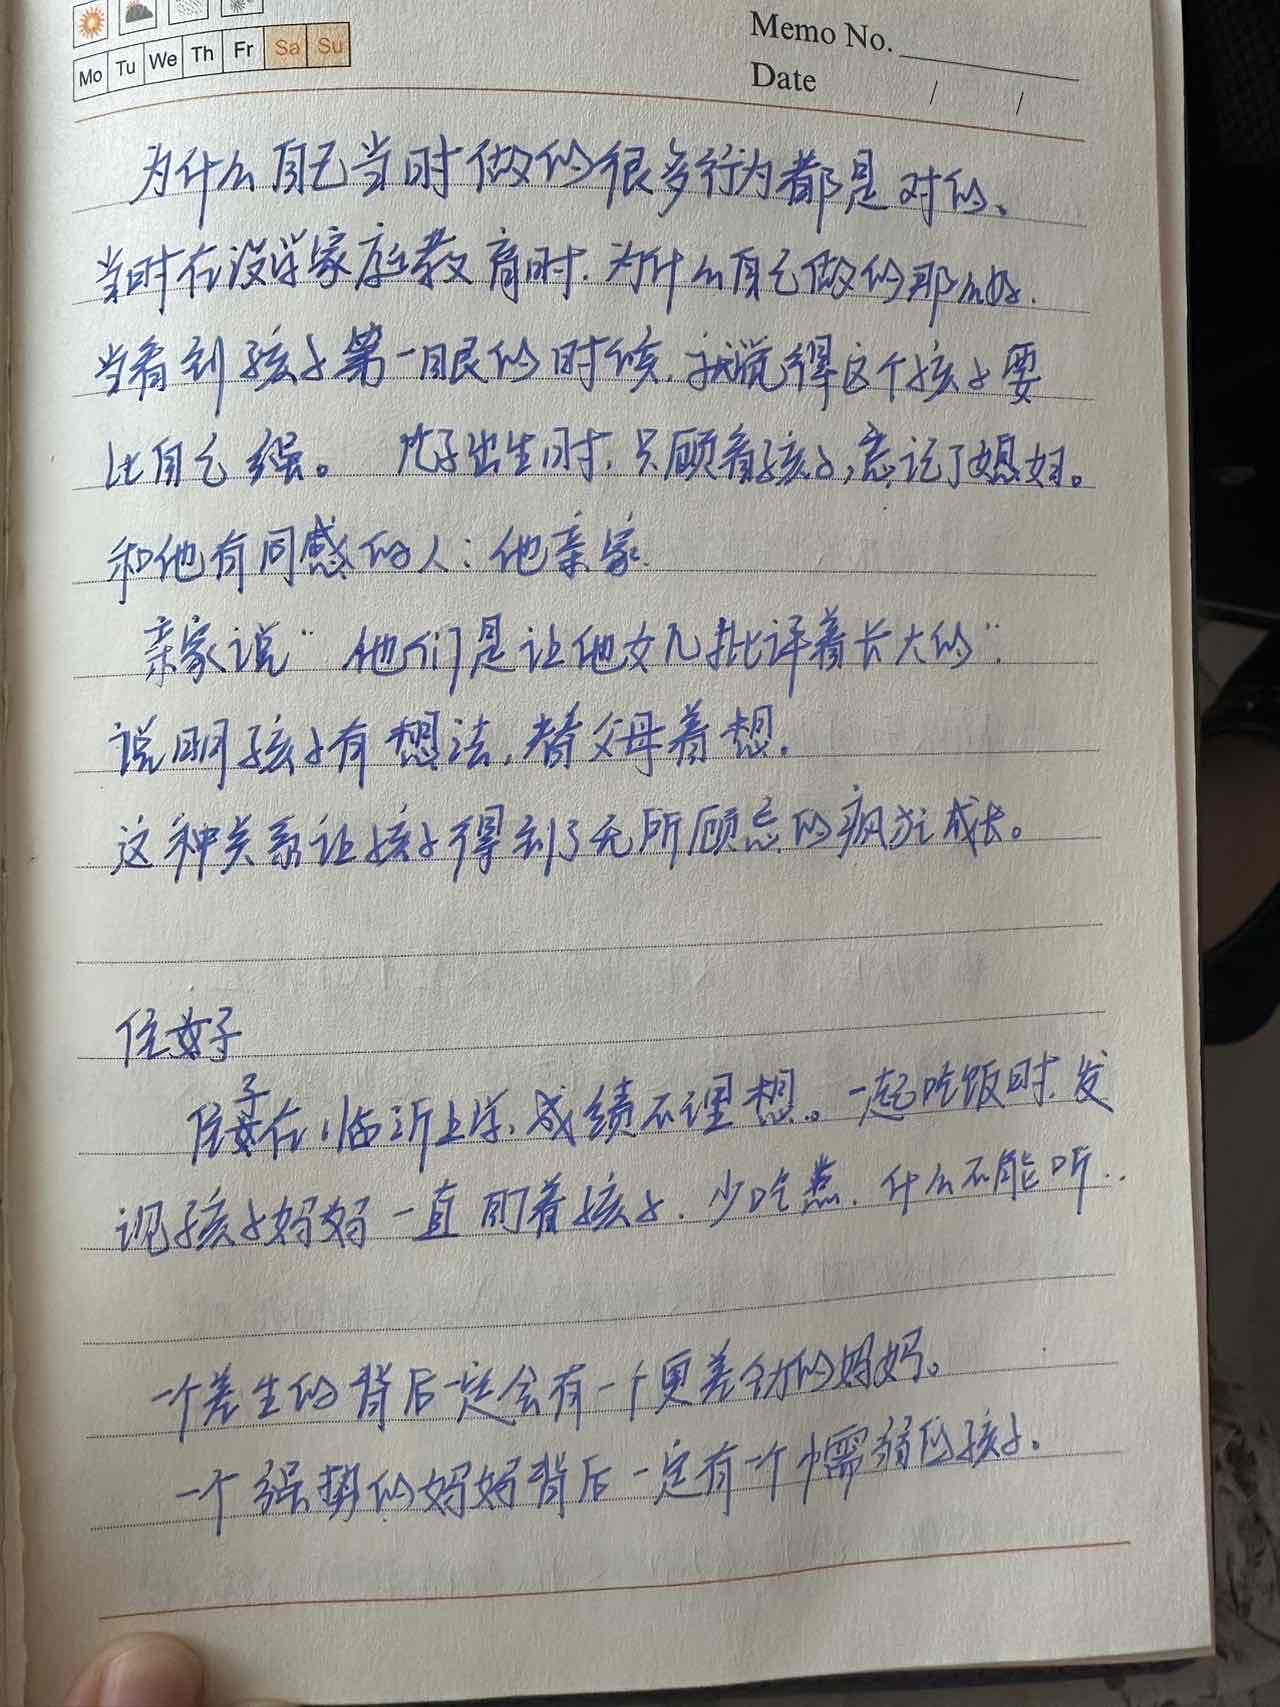 Mo Tu We Th Fr Sa Su
Memo No.
Date / /
为什么自己当时做的很多行为都是对的、
当时在没学家庭教育时.为什么自己做的那么好.
当看到孩子第一眼的时候.就觉得这个孩子要
比自己强。 儿子出生时.只顾着孩子,忘记了媳妇。
和他有同感的人:他亲家.
亲家说"他们是让他女儿批评着长大的".
说明孩子有想法.替父母着想.
这种关系让孩子得到了无所顾忌的疯狂成长。
侄女子
侄子在临沂上学、成绩不理想。一起吃饭时.发
现孩子妈妈一直盯着孩子.少吃点.什么不能听..
一个差生的背后一定会有一个更差劲的妈妈。
一个强势的妈妈背后一定有一个懦弱的孩子.